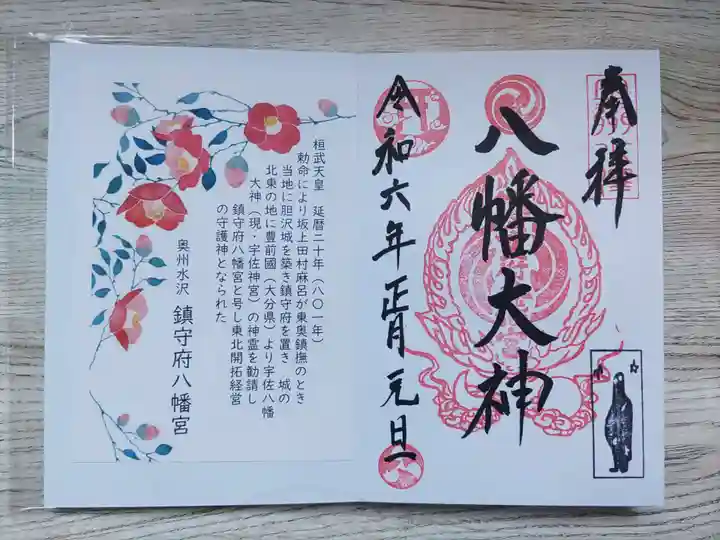 奉拝
八幡大神
令和六年正月元旦
桓武天皇 延暦二十年(八〇一年)
勅命により坂上田村麻呂が東奥鎮撫のとき
当地に胆沢城を築き鎮守府を置き 城の
北東の地に豊前國(大分県)より宇佐八幡
大神(現・宇佐神宮)の神霊を勧請し
鎮守府八幡宮と号し東北開拓経営
の守護神となられた
奥州水沢 鎮守府八幡宮